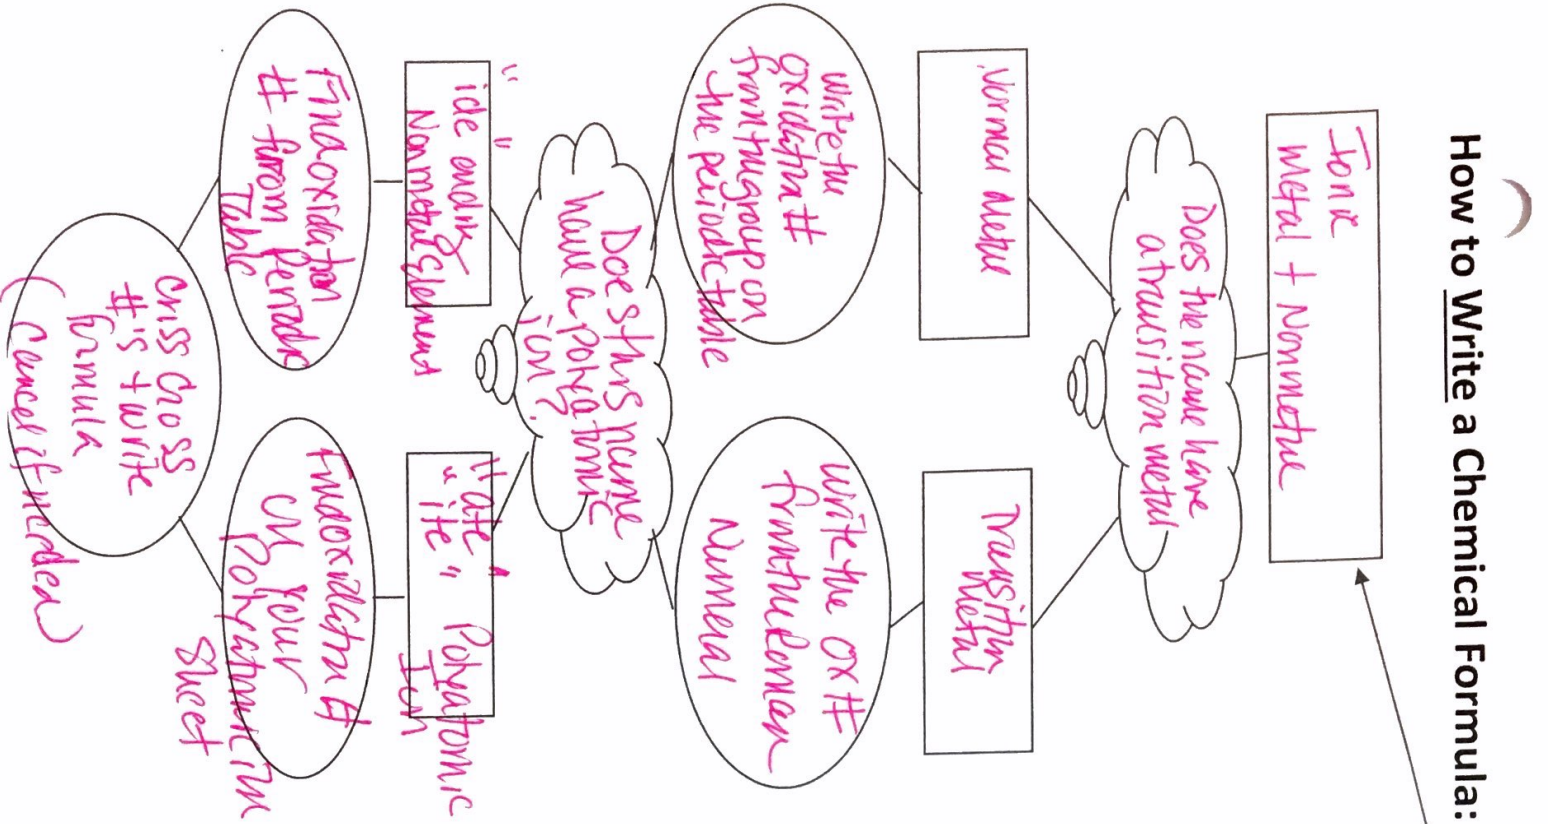 How to Write a Chemical Formula:
Ionic
Metal + Nonmetal
Does the name have
a transition metal
Normal Metal
Transition
Metal
Write the
oxidation #
from the group on
the periodic table
Write the ox #
from the Roman
Numeral
Does this name
have a polyatomic
ion?
"ide ending"
Nonmetal Element
"ate"
"ite" Polyatomic
Ion
Find oxidation
# from Periodic
Table
Find oxidation #
on your
Polyatomic Ion
Sheet
Criss Cross
#'s + write
formula
(Cancel if needed)